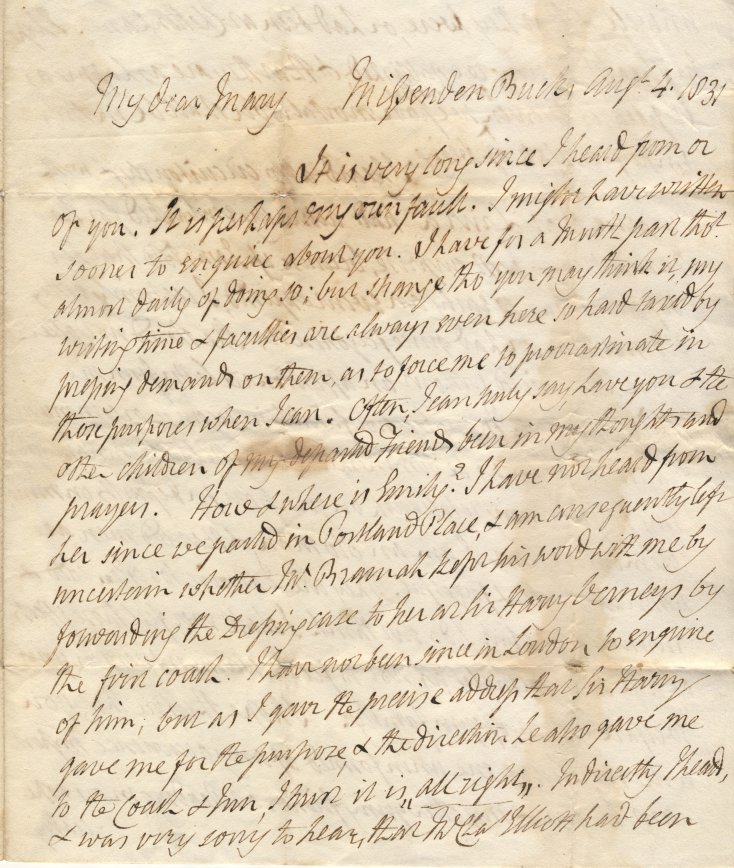 My dear Mary Missenden Bucks Augt. 4. 1831
It is very long since I heard from or
of you. It is perhaps my own fault. I might have written
sooner to enquire about you. I have for a month past thot.
almost daily of doing so; but strange tho' you may think it, my
writing time & faculties are always even here so hard taxed by
pressing demands on them, as to force me to procrastinate in
those purposes when I can. Often, I can truly say, have you & the
other children of my departed Friend been in my thoughts and
prayers. How & where is Emily? I have not heard from
her since we parted in Portland Place, & am consequently left
uncertain whether Mr. Bramah kept his word with me by
forwarding the Dressing case to her at Sir Harry Verneys by
the first coach. I have not been since in London to enquire
of him; but as I gave the precise address that Sir Harry
gave me for the purpose & the direction he also gave me
to the Coach & Inn, I trust it is "all right". Indirectly I heard,
& was very sorry to hear, that Elliott had been